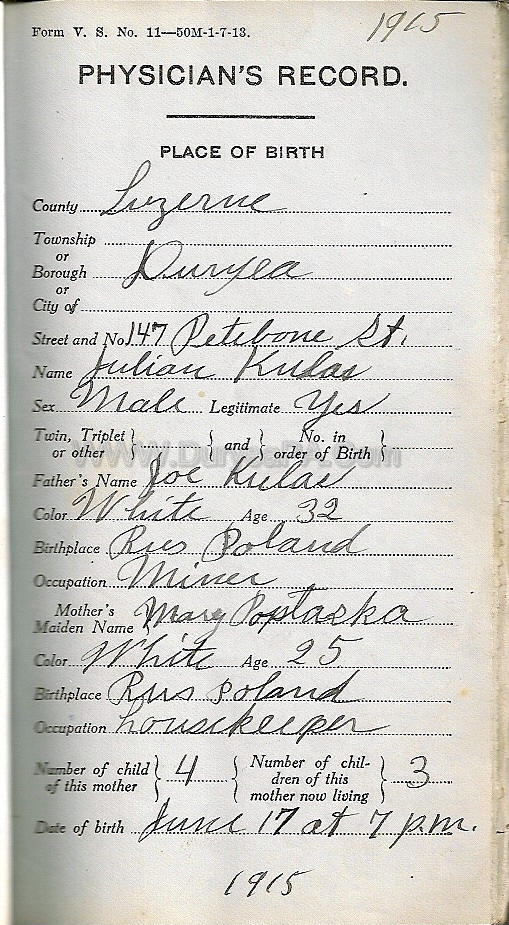 Form V. S. No. 11—50M-1-7-13.
1915
PHYSICIAN'S RECORD.
PLACE OF BIRTH
County Luzerne
Township
or
Borough Duryea
or
City of
Street and No. 147 Petebone St.
Name Julian Kulas
Sex Male Legitimate Yes
Twin, Triplet or other } { and } No. in order of Birth }
www.DuryeaPA.com
Father's Name Joe Kulas
Color White Age 32
Birthplace Rus Poland
Occupation Miner
Mother's Maiden Name } Mary
Color White Age 25
Birthplace Rus Poland
Occupation housekeeper
Number of child of this mother } 4 { Number of children of this mother now living } 3
Date of birth June 17 at 7 p.m.
1915